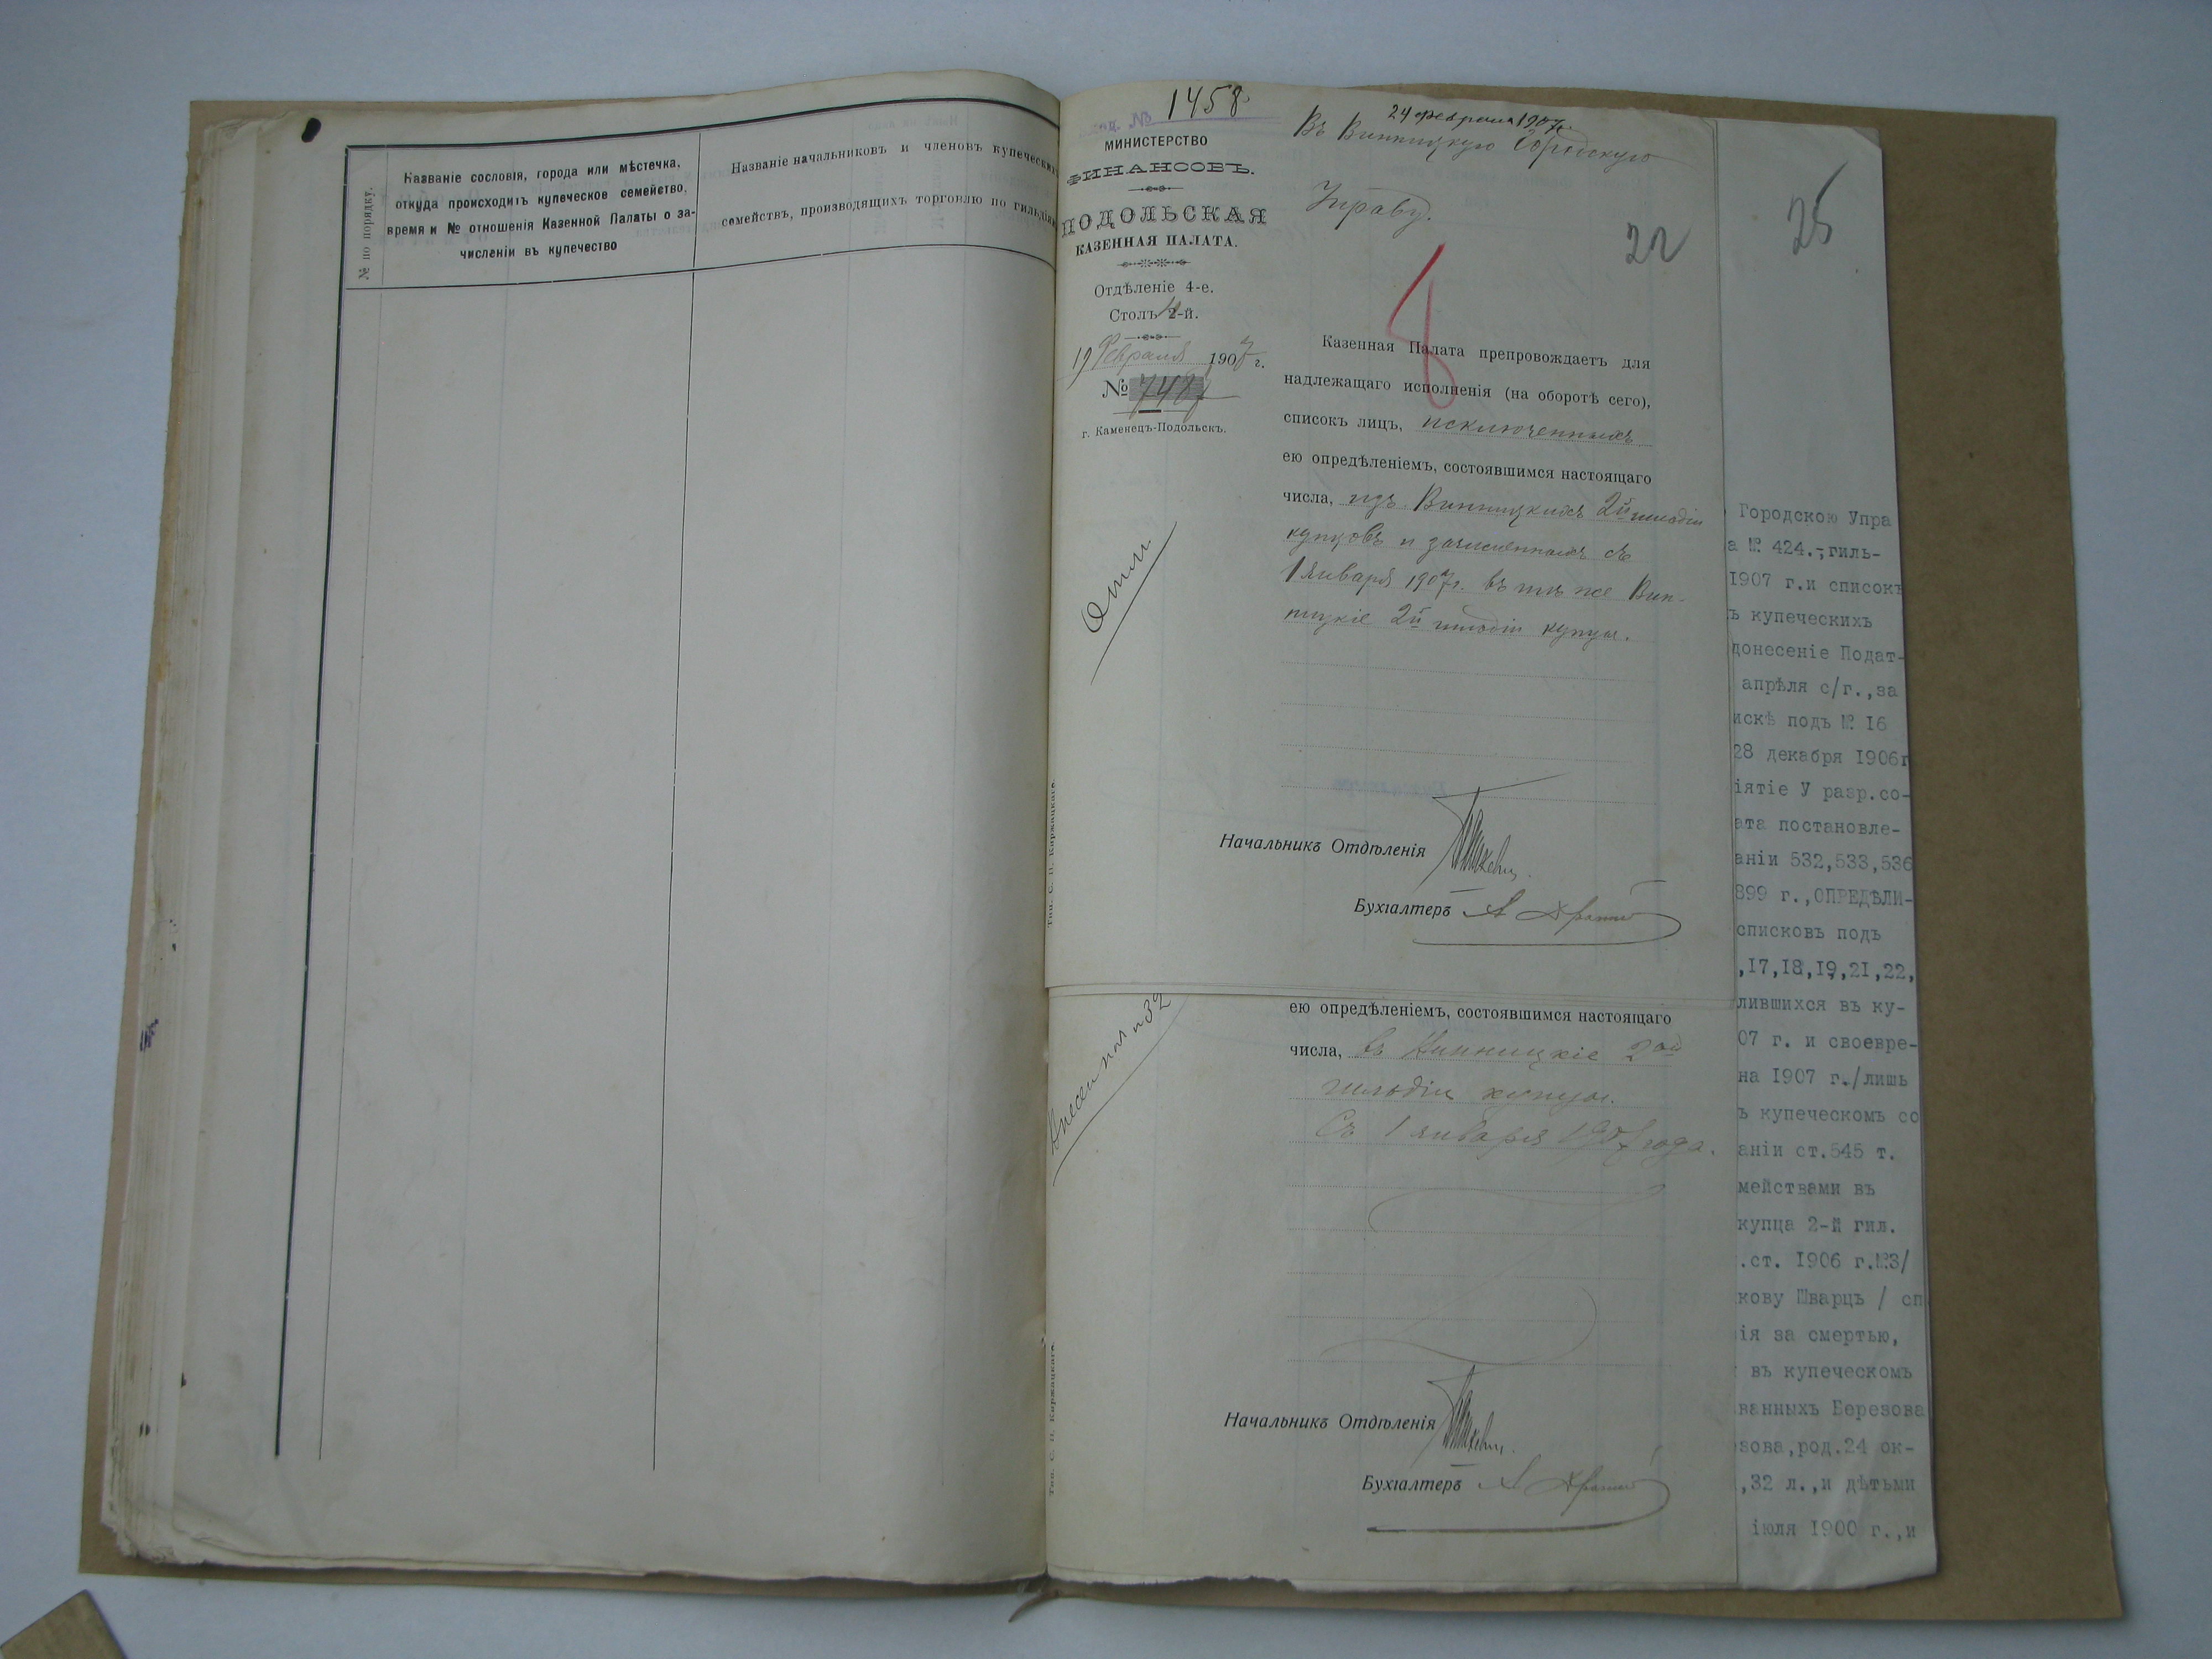 № по порядку.
Названіе сословія, города или мѣстечка,
откуда происходитъ купеческое семейство,
время и № отношенія Казенной Палаты о за-
численіи въ купечество
Названіе начальниковъ и членовъ купеческихъ
семействъ, производящихъ торговлю по гильдіи
№ 1458
24 февраля 1907 г.
МИНИСТЕРСТВО
ФИНАНСОВЪ.
ПОДОЛЬСКАЯ
КАЗЕННАЯ ПАЛАТА.
Отдѣленіе 4-е.
Столъ 2-й.
19 Февраля 1907 г.
№ 7487
г. Каменецъ-Подольскъ.
Въ Винницкую Городскую
Управу.
22
8
Казенная Палата препровождаетъ для
надлежащаго исполненія (на оборотѣ сего),
списокъ лицъ, исключенныхъ
ею опредѣленіемъ, состоявшимся настоящаго
числа, изъ Винницкихъ 2й гильдіи
купцовъ и зачисленныхъ съ
1 Января 1907 г. въ тѣ же Вин-
ницкіе 2й гильдіи купцы.
Начальникъ Отдѣленія
Бухгалтеръ
Тип. С. П. Киржацкаго.
ею опредѣленіемъ, состоявшимся настоящаго
числа, въ Винницкіе 2ой
гильдіи купцы.
Съ 1 января 1907 года.
Начальникъ Отдѣленія
Бухгалтеръ
Тип. С. П. Киржацкаго.
25
Городскою Упра
а № 424.-,гиль-
1907 г.и списокъ
ъ купеческихъ
донесеніе Подат-
апрѣля с/г.,за
искѣ подъ № 16
28 декабря 1906г
іятіе У разр.со-
ата постановле-
аніи 532,533,536
899 г.,ОПРЕДѢЛИ-
списковъ подъ
,17,18,19,21,22,
лившихся въ ку-
07 г. и своевре-
на 1907 г./лишь
ъ купеческомъ со
аніи ст.545 т.
мействами въ
купца 2-й гил.
.ст. 1906 г.№3/
кову Шварцъ / сп
ія за смертью,
въ купеческомъ
ванныхъ Березова
зова,род.24 ок-
,32 л.,и дѣтьми
іюля 1900 г.,и